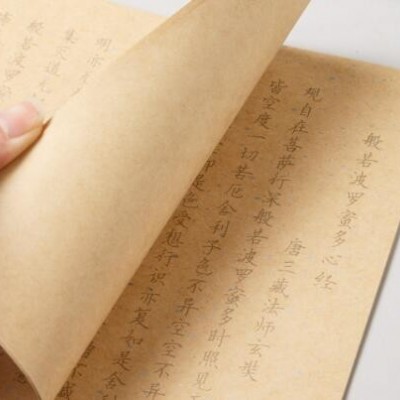 般若波罗蜜多心经
唐三藏法师玄奘
观自在菩萨行深般若波罗蜜多时照见
皆空度一切苦厄舍利子色不异空空不异
即是色受想行识亦复如是舍
集灭道无
般若波罗